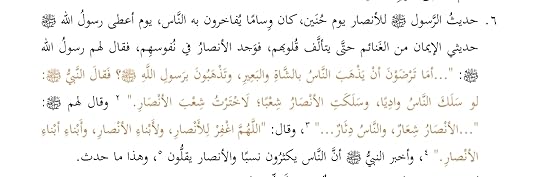 ٦. حديثُ الرَّسول ﷺ للأنصار يوم حُنَين، كان وِسامًا يُفاخرون به النَّاس، يوم أعطى رسولُ الله ﷺ
حديثي الإيمان من الغنائم حتَّى يتألَّف قُلوبهم، فوَجد الأنصار في نُفوسهم، فقال لهم رسول الله
ﷺ: "...أمَا تَرْضَوْنَ أنْ يَذْهَبَ النَّاسُ بالشَّاةِ والبَعِيرِ، وتَذْهَبُونَ برَسولِ اللَّهِ ﷺ؟ فَقالَ النَّبيُّ ﷺ:
لو سَلَكَ النَّاسُ وادِيًا، وسَلَكَتِ الأنْصَارُ شِعْبًا؛ لَاخْتَرْتُ شِعْبَ الأنْصَارِ." ٢ وقال لهم ﷺ:
"...الأنْصَارُ شِعَارٌ، والنَّاسُ دِثَارٌ..." ٣، وقال: "اللَّهُمَّ اغْفِرْ لِلأَنْصارِ، ولأَبْناءِ الأنْصارِ، وأَبْناءِ أبْناءِ
الأنْصارِ." ٤، وأخبر النبيُّ ﷺ أنَّ النَّاس يكثرُون نسبًا والأنصار يقلُّون ٥، وهذا ما حدث.